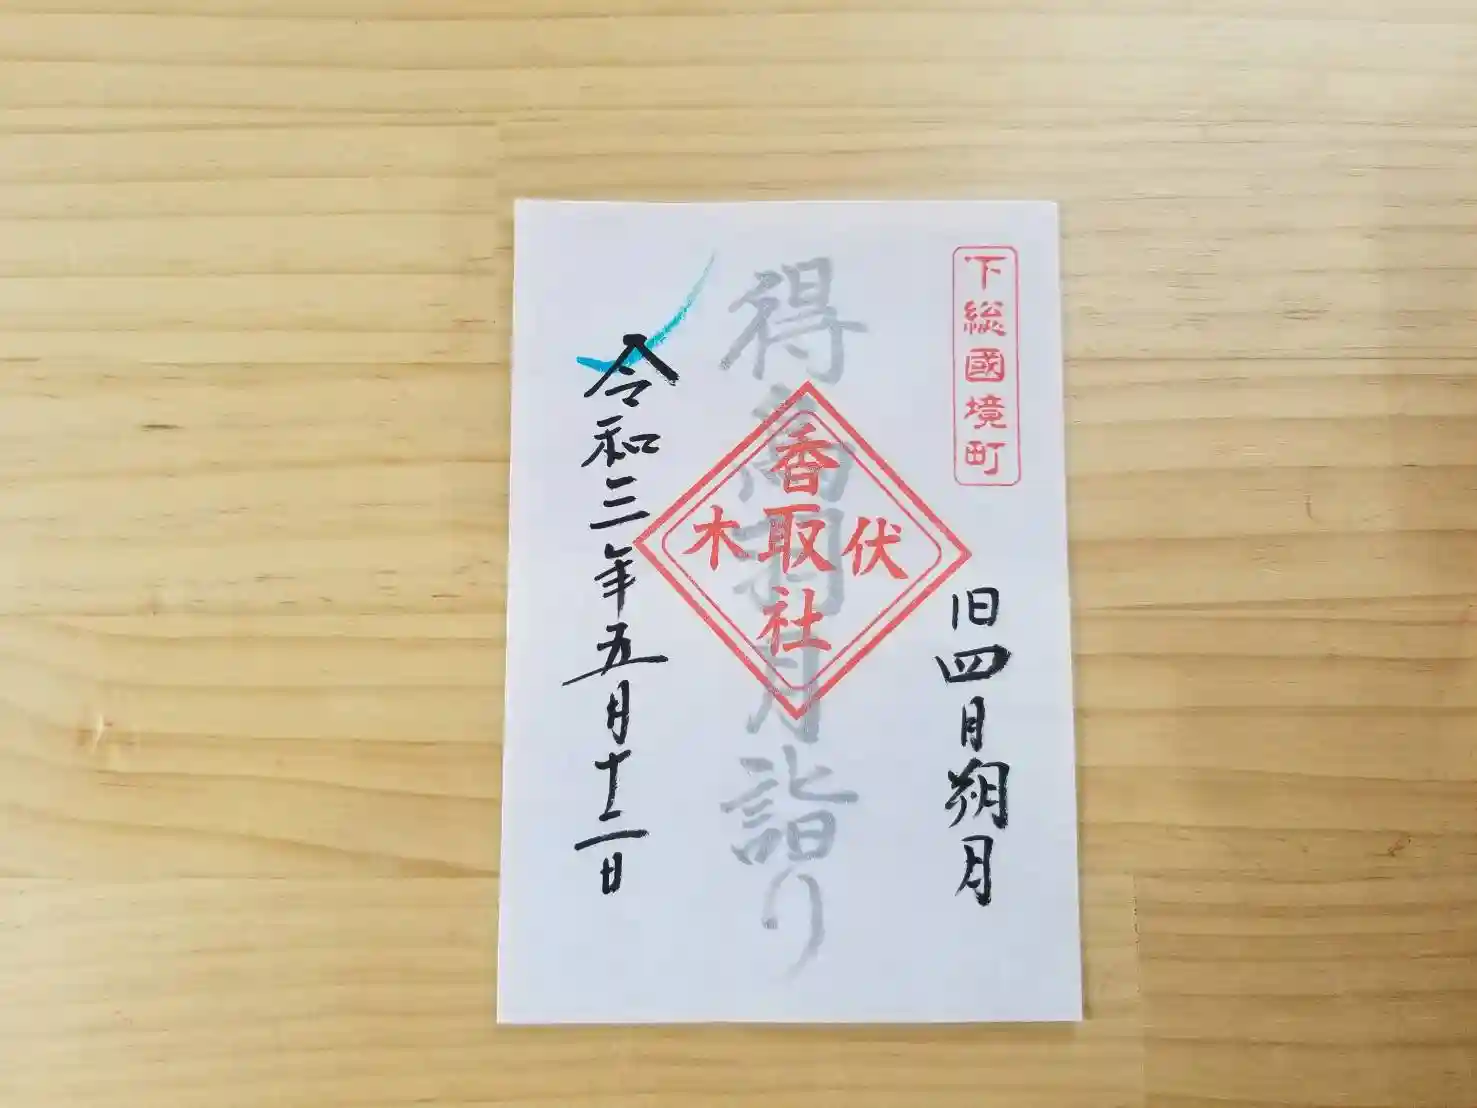 下総國境町
旧四月朔月
得鳥羽月詣り
伏木
香取社
令和三年五月十二日